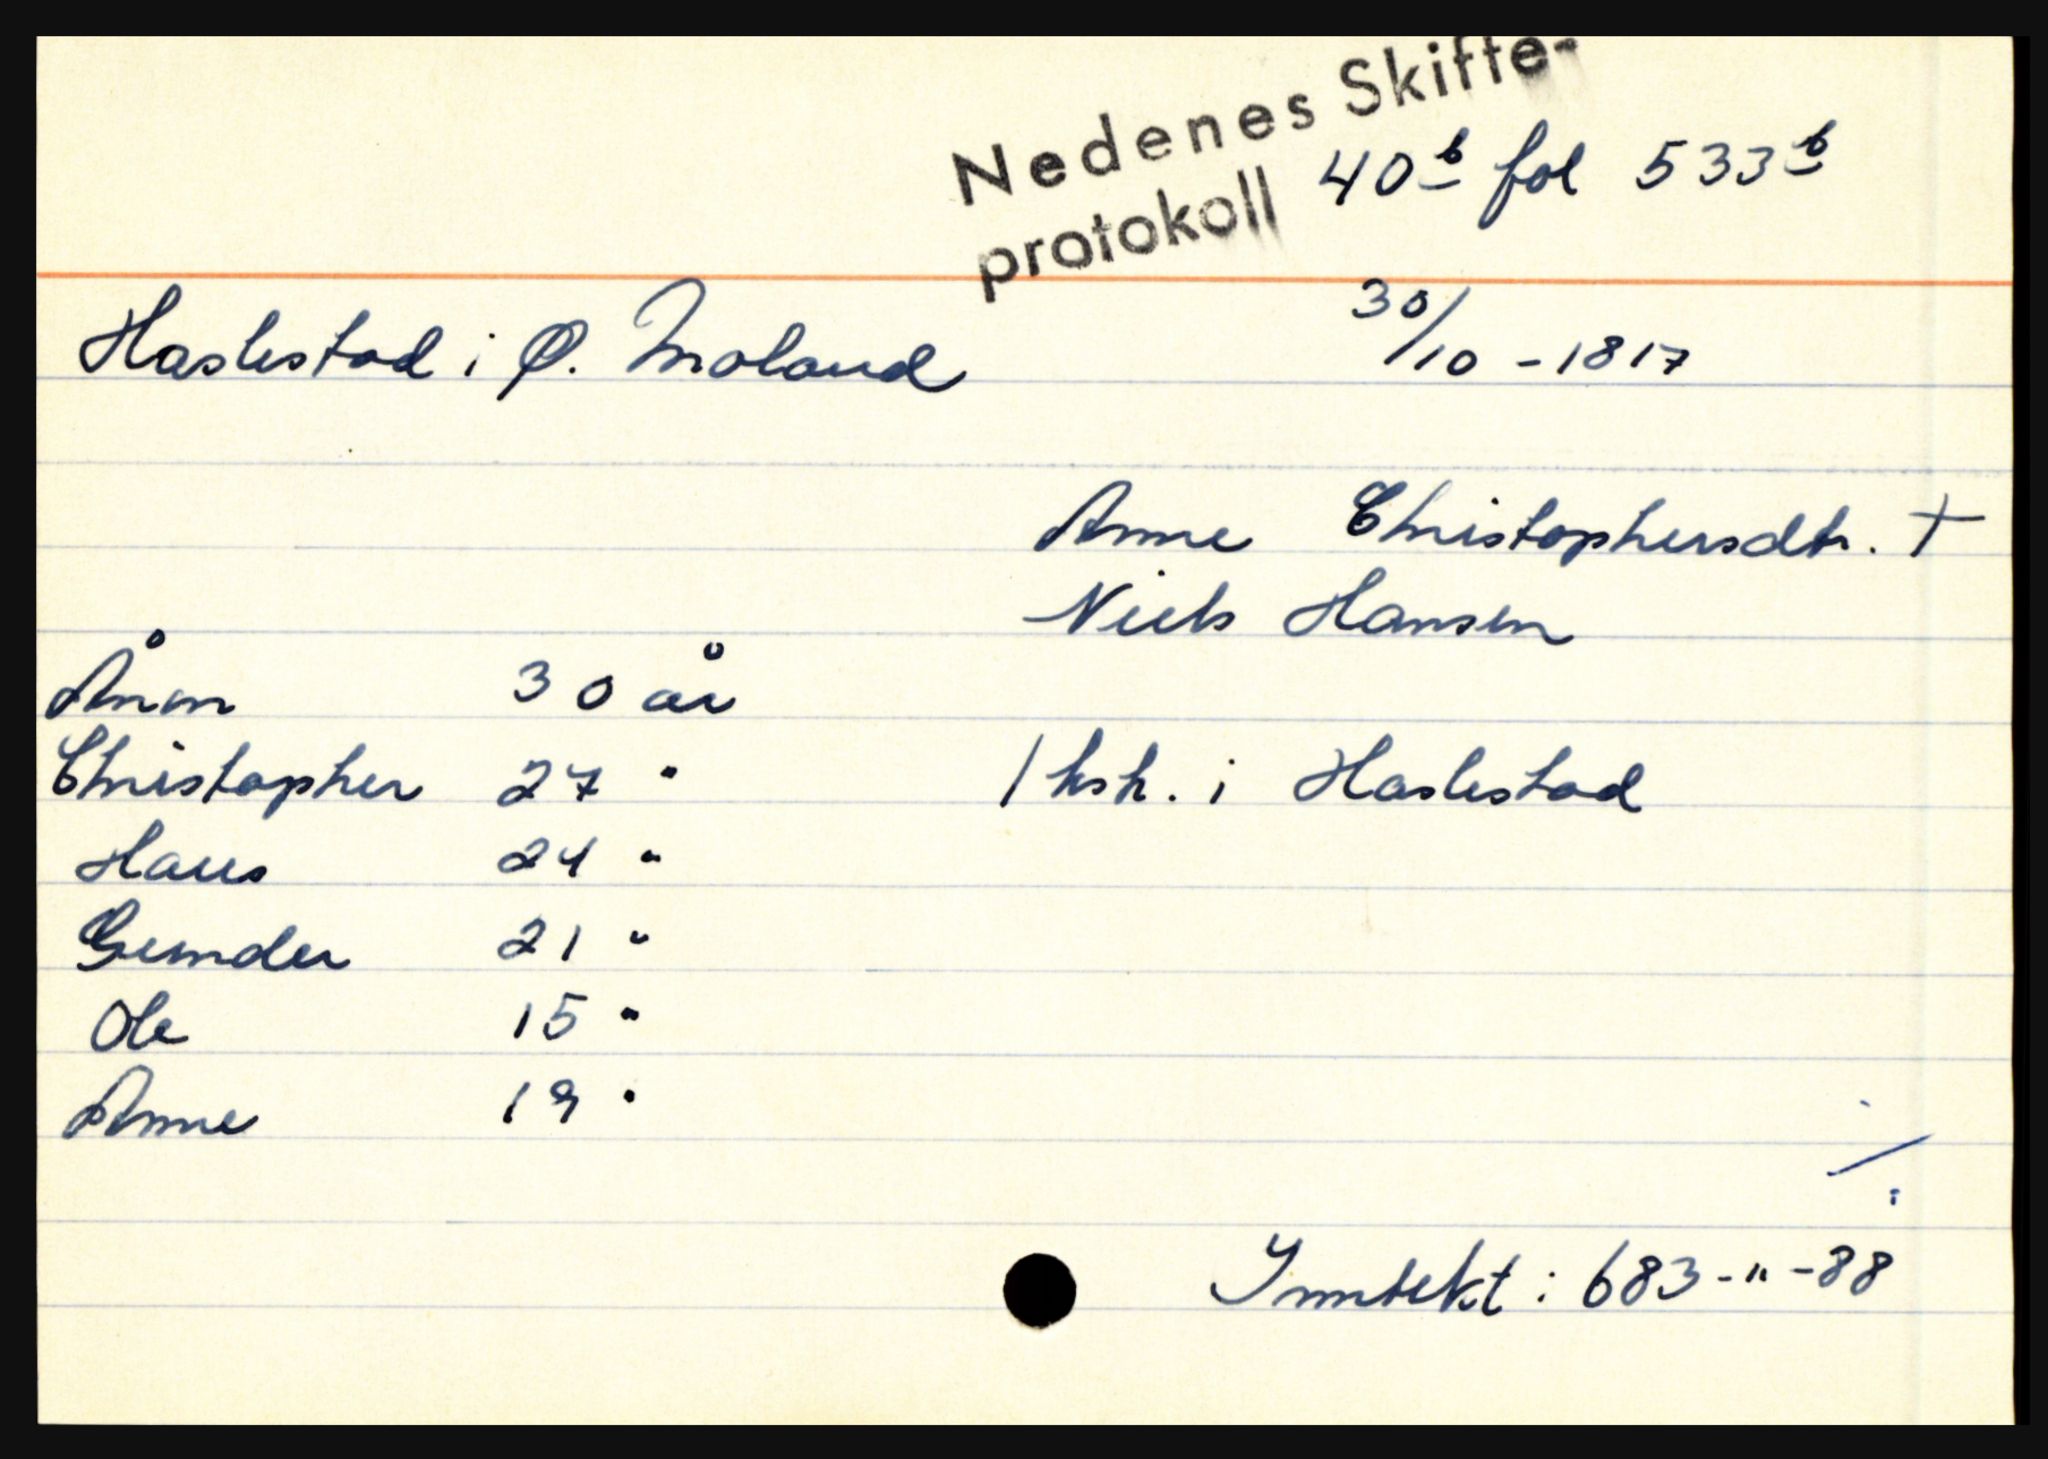 Nedenes Skifte-
protokoll 40b fol 533b
Haslestad i Ø. Moland 30/10 - 1817
Anne Christophersdtr. †
Niels Hansen
Ånon 30 år
Christopher 27 "
1 hsh. i Haslestad
Hans 24 "
Gunder 21 "
Ole 15 "
Anne 19 "
Inntekt : 683 - " - 88